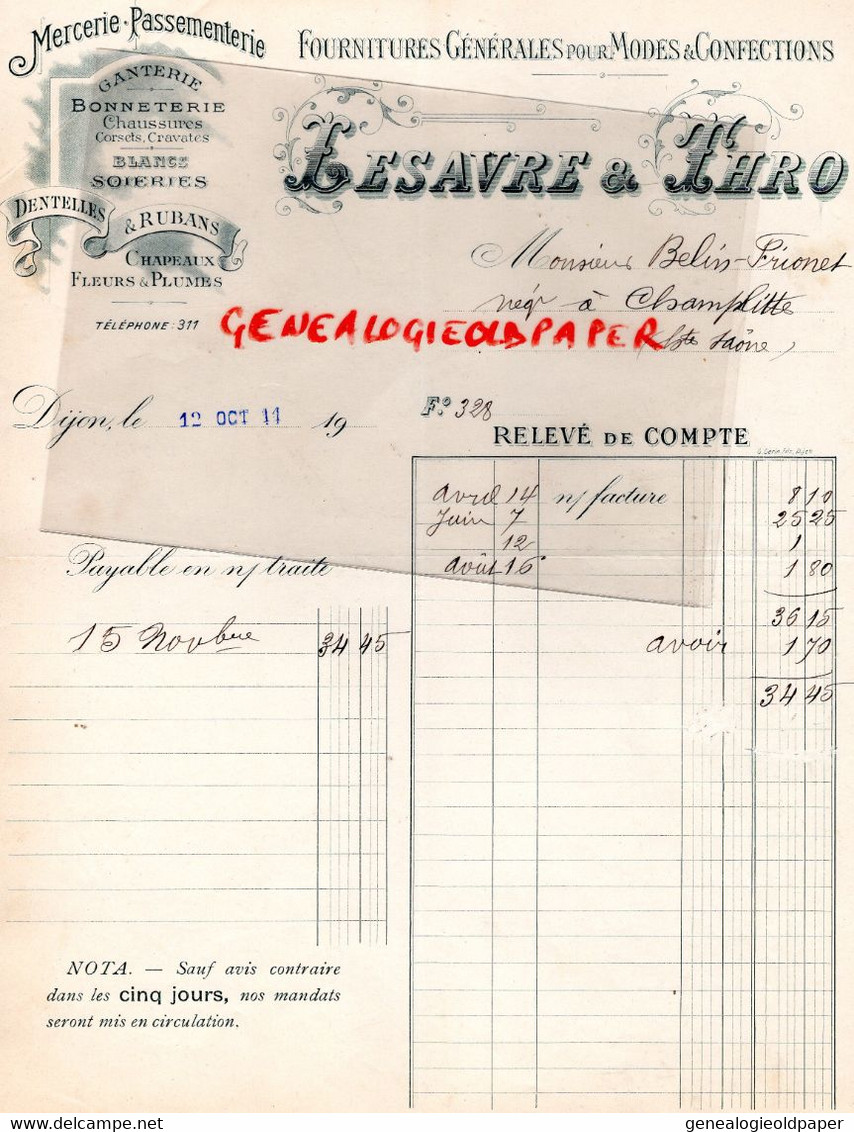 Mercerie - Passementerie
FOURNITURES GÉNÉRALES POUR MODES & CONFECTIONS
GANTERIE
BONNETERIE
Chaussures
Corsets, Cravates
BLANCS
SOIERIES
DENTELLES
& RUBANS
CHAPEAUX
FLEURS & PLUMES
TÉLÉPHONE: 311
LESAVRE & THRO
Monsieur Belin-Frionet
négt à Champlitte
(Hte Saône)
GENEALOGIEOLDPAPER
Dijon, le 12 OCT 11 19
F.o 328
RELEVÉ DE COMPTE
avril 14 n/ facture 8 10
Juin 7 25 25
12 1
août 16 1 80
36 15
avoir 1 70
34 45
Payable en n/ traite
15 Novbre 34 45
NOTA. — Sauf avis contraire
dans les cinq jours, nos mandats
seront mis en circulation.
www.delcampe.net
genealogieoldpaper